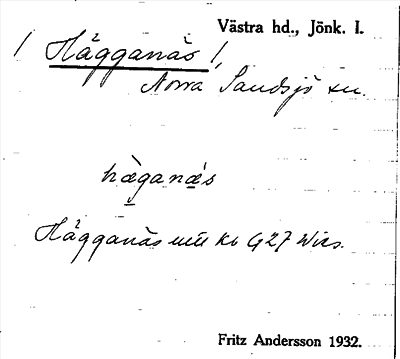 Västra hd., Jönk. l.
/ Hägganäs /,
Norra Sandsjö sn.
hàganä́s
Hägganäs
Fritz Andersson 1932.